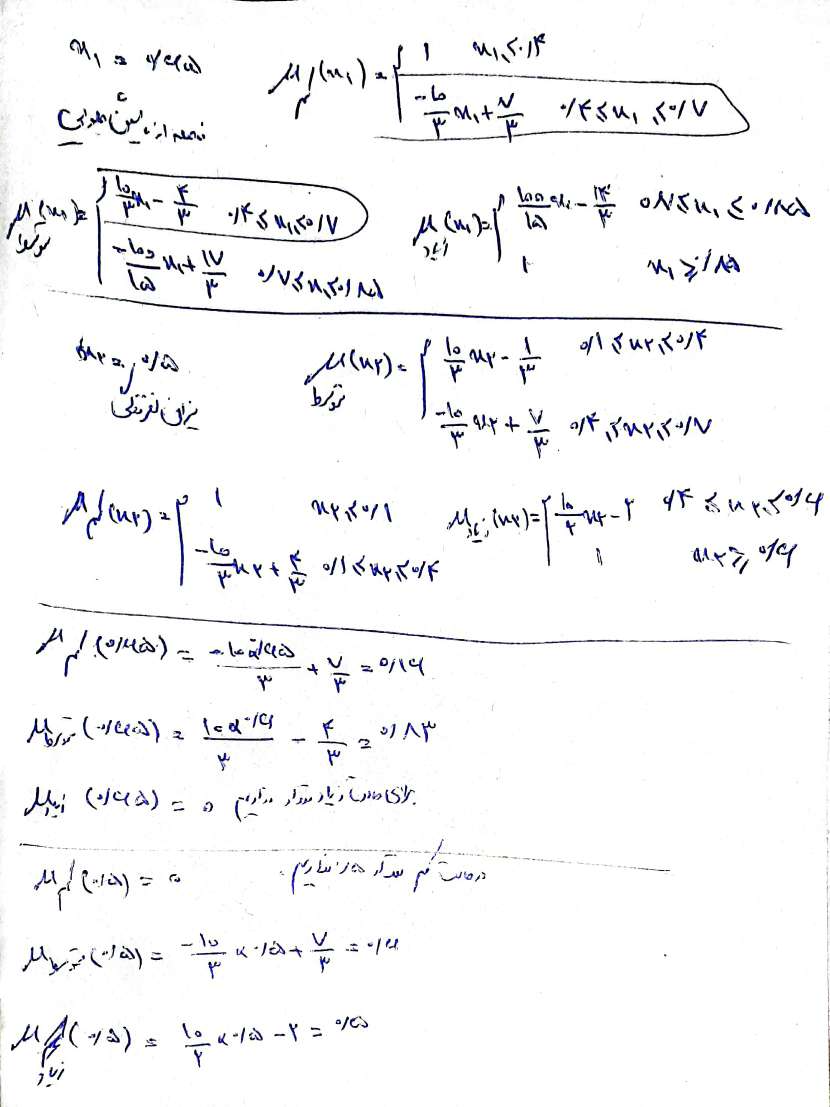 x₁ = ۰/۶۵
μکم(x₁) = { ۱    x₁ ≤ ۰/۴
-۱۰/۳ x₁ + ۷/۳    ۰/۴ ≤ x₁ ≤ ۰/۷
فاصله از ماشین جلویی
μمتوسط(x₁) = { ۱۰/۳ x₁ - ۴/۳    ۰/۴ ≤ x₁ ≤ ۰/۷
-۱۰۰/۱۵ x₁ + ۱۷/۳    ۰/۷ ≤ x₁ ≤ ۰/۸۵
μزیاد(x₁) = { ۱۰۰/۱۵ x₁ - ۱۴/۳    ۰/۷ ≤ x₁ ≤ ۰/۸۵
۱    x₁ ≥ ۰/۸۵
x₂ = ۰/۵
میزان لغزندگی
μمتوسط(x₂) = { ۱۰/۳ x₂ - ۱/۳    ۰/۱ ≤ x₂ ≤ ۰/۴
-۱۰/۳ x₂ + ۷/۳    ۰/۴ ≤ x₂ ≤ ۰/۷
μکم(x₂) = { ۱    x₂ ≤ ۰/۱
-۱۰/۳ x₂ + ۴/۳    ۰/۱ ≤ x₂ ≤ ۰/۴
μزیاد(x₂) = { ۱۰/۲ x₂ - ۲    ۰/۴ ≤ x₂ ≤ ۰/۶
۱    x₂ ≥ ۰/۶
μکم(۰/۶۵) = -۱۰×۰/۶۵/۳ + ۷/۳ = ۰/۱۶
μمتوسط(۰/۶۵) = ۱۰×۰/۶۵/۳ - ۴/۳ = ۰/۸۳
μزیاد(۰/۶۵) = ۰ برای حالت زیاد مقدار نداریم
μکم(۰/۵) = ۰ در حالت کم مقدار نداریم.
μمتوسط(۰/۵) = -۱۰/۳ × ۰/۵ + ۷/۳ = ۰/۶
μزیاد(۰/۵) = ۱۰/۲ × ۰/۵ - ۲ = ۰/۵